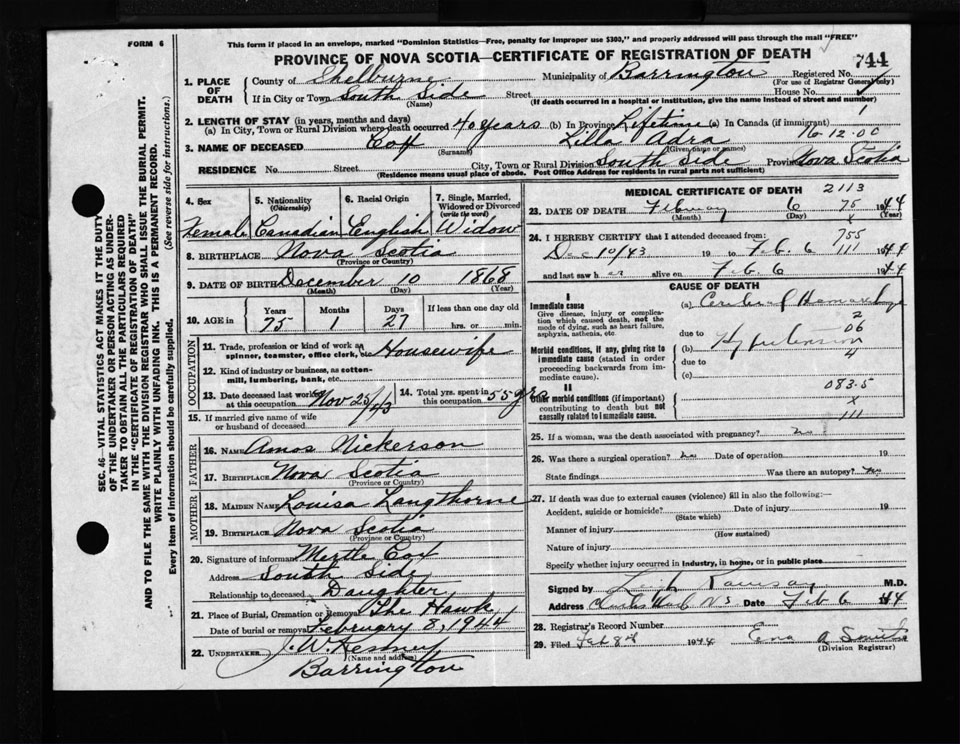 FORM 6
This form if placed in an envelope, marked "Dominion Statistics—Free, penalty for improper use $303," and properly addressed will pass through the mail "FREE"
PROVINCE OF NOVA SCOTIA—CERTIFICATE OF REGISTRATION OF DEATH
744
1. PLACE OF DEATH
County of Shelburne Municipality of Barrington Registered No.
(For use of Registrar General only)
If in City or Town South Side Street House No.
(Name) (If death occurred in a hospital or institution, give the name instead of street and number)
2. LENGTH OF STAY (in years, months and days)
(a) In City, Town or Rural Division where death occurred 40 years (b) In Province Lifetime (c) In Canada (if immigrant)
16-12-00
3. NAME OF DECEASED Cox Lilla Adra
(Surname) (Given name or names)
RESIDENCE No. Street City, Town or Rural Division South Side Province Nova Scotia
(Residence means usual place of abode. Post Office Address for residents in rural parts not sufficient)
4. Sex 5. Nationality (Citizenship) 6. Racial Origin 7. Single, Married, Widowed or Divorced (write the word)
Female Canadian English Widow
8. BIRTHPLACE Nova Scotia
(Province or Country)
9. DATE OF BIRTH December 10 1868
(Month) (Day) (Year)
10. AGE in Years Months Days If less than one day old
75 1 27 hrs. or min.
OCCUPATION
11. Trade, profession or kind of work as spinner, teamster, office clerk, etc. Housewife
12. Kind of industry or business, as cotton-mill, lumbering, bank, etc.
13. Date deceased last worked at this occupation Nov 25/43
14. Total yrs. spent in this occupation 55 yrs
15. If married give name of wife or husband of deceased
FATHER
16. NAME Amos Nickerson
17. BIRTHPLACE Nova Scotia
(Province or Country)
MOTHER
18. MAIDEN NAME Louisa Langthorne
19. BIRTHPLACE Nova Scotia
(Province or Country)
20. Signature of informant Mertle Cox
Address South Side
Relationship to deceased Daughter
21. Place of Burial, Cremation or Removal The Hawk
Date of burial or removal February 8, 1944
22. UNDERTAKER J. W. Kenney
(Name and address)
Barrington
MEDICAL CERTIFICATE OF DEATH 2113
23. DATE OF DEATH February 6 1944
(Month) (Day) (Year)
75
x
24. I HEREBY CERTIFY that I attended deceased from:
755
Dec 10/43 19 to Feb. 6 1944
111
and last saw her alive on Feb. 6 1944
CAUSE OF DEATH
I
Immediate cause
Give disease, injury or complication which caused death, not the mode of dying, such as heart failure, asphyxia, asthenia, etc.
(a) Cerebral Hemorrhage
2
due to 06
Morbid conditions, if any, giving rise to immediate cause (stated in order proceeding backwards from immediate cause).
(b) Hypertension
due to 4
(c)
II
083.5
Other morbid conditions (if important) contributing to death but not causally related to immediate cause.
x
111
25. If a woman, was the death associated with pregnancy? no
26. Was there a surgical operation? no Date of operation 19
State findings Was there an autopsy? no
27. If death was due to external causes (violence) fill in also the following:—
Accident, suicide or homicide? Date of injury 19
(State which)
Manner of injury
(How sustained)
Nature of injury
Specify whether injury occurred in industry, in home, or in public place
Signed by Ramsay M.D.
Address N S Date Feb 6 44
28. Registrar's Record Number
29. Filed Feb 8th 1944 A Smith
(Division Registrar)
SEC. 46—VITAL STATISTICS ACT MAKES IT THE DUTY OF THE UNDERTAKER OR PERSON ACTING AS UNDERTAKER TO OBTAIN ALL THE PARTICULARS REQUIRED IN THE "CERTIFICATE OF REGISTRATION OF DEATH" AND TO FILE THE SAME WITH THE DIVISION REGISTRAR WHO SHALL ISSUE THE BURIAL PERMIT.
WRITE PLAINLY WITH UNFADING INK. THIS IS A PERMANENT RECORD.
Every item of information should be carefully supplied. (See reverse side for instructions.)